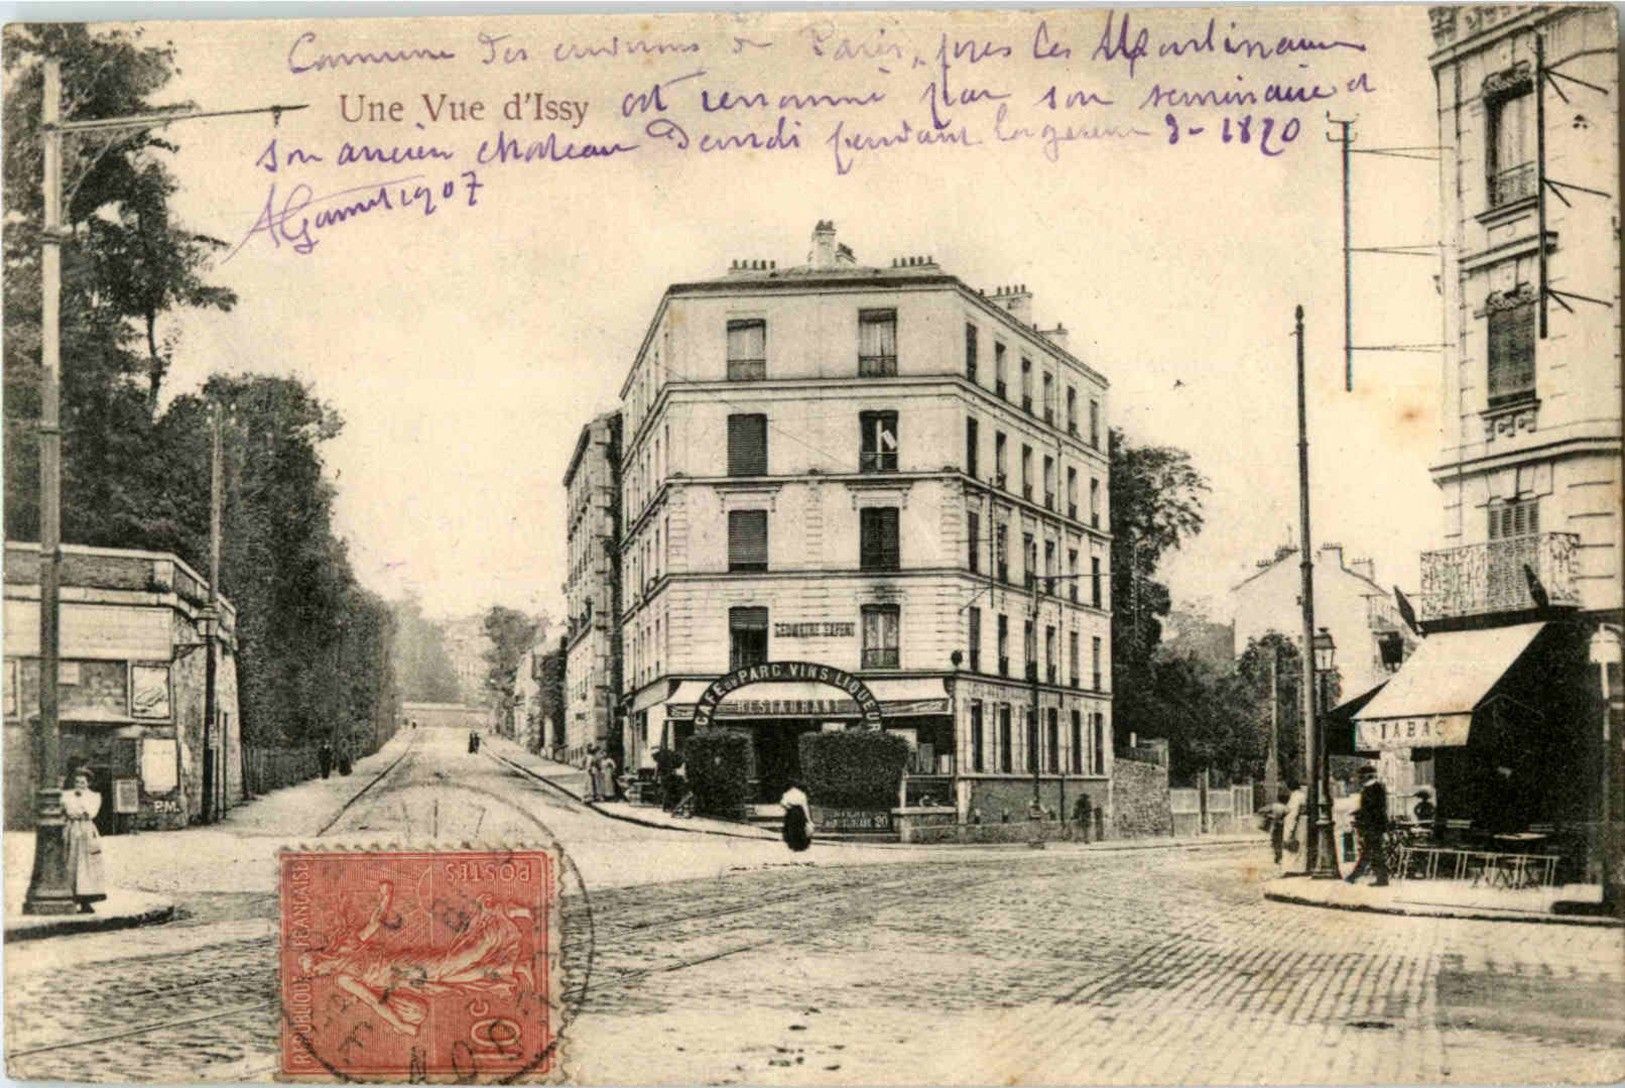 Commune des environs de Paris, près les Moulineaux
Une Vue d'Issy est renommé par son seminaire et
son ancien chateau pendant 1870
1907
GEOMETRE EXPERT
CAFE DU PARC VINS LIQUEUR
RESTAURANT
TABAC
P.M.
20
POSTES
REPUBLIQUE FRANÇAISE
10c